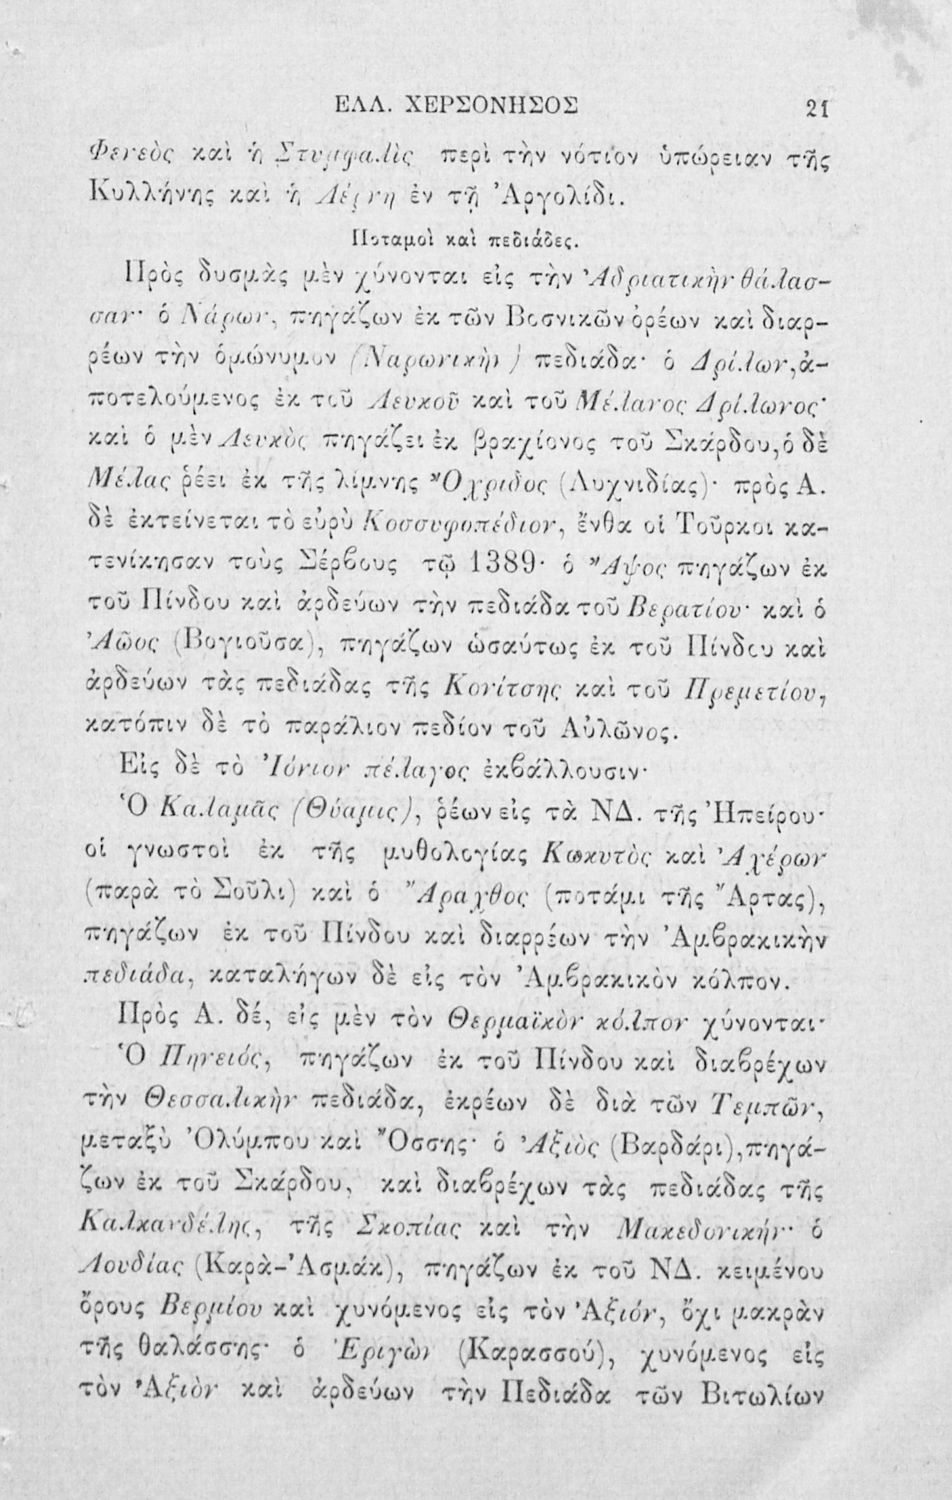 ΕΛΛ. ΧΕΡΣΟΝΗΣΟΣ 21
Φενεὸς καὶ ἡ Στυμφαλὶς περὶ τὴν νότιον ὑπώρειαν τῆς
Κυλλήνης καὶ ἡ Λέρνη ἐν τῇ Ἀργολίδι.
Ποταμοὶ καὶ πεδιάδες.
Πρὸς δυσμὰς μὲν χύνονται εἰς τὴν Ἀδριατικὴν θάλασ-
σαν· ὁ Νάρων, πηγάζων ἐκ τῶν Βοσνικῶν ὀρέων καὶ διαρ-
ρέων τὴν ὁμώνυμον (Ναρωνικὴν) πεδιάδα· ὁ Δρίλων, ἀ-
ποτελούμενος ἐκ τοῦ Λευκοῦ καὶ τοῦ Μέλανος Δρίλωνος·
καὶ ὁ μὲν Λευκὸς πηγάζει ἐκ βραχίονος τοῦ Σκάρδου, ὁ δὲ
Μέλας ῥέει ἐκ τῆς λίμνης Ὄχριδος (Λυχνιδίας)· πρὸς Α.
δὲ ἐκτείνεται τὸ εὐρὺ Κοσσυφοπέδιον, ἔνθα οἱ Τοῦρκοι κα-
τενίκησαν τοὺς Σέρβους τῷ 1389· ὁ Ἄψος πηγάζων ἐκ
τοῦ Πίνδου καὶ ἀρδεύων τὴν πεδιάδα τοῦ Βερατίου· καὶ ὁ
Ἀῶος (Βογιοῦσα), πηγάζων ὡσαύτως ἐκ τοῦ Πίνδου καὶ
ἀρδεύων τὰς πεδιάδας τῆς Κονίτσης καὶ τοῦ Πρεμετίου,
κατόπιν δὲ τὸ παράλιον πεδίον τοῦ Αὐλῶνος.
Εἰς δὲ τὸ Ἰόνιον πέλαγος ἐκβάλλουσιν·
Ὁ Καλαμᾶς (Θύαμις), ῥέων εἰς τὰ ΝΔ. τῆς Ἠπείρου·
οἱ γνωστοὶ ἐκ τῆς μυθολογίας Κωκυτὸς καὶ Ἀχέρων
(παρὰ τὸ Σοῦλι) καὶ ὁ Ἄραχθος (ποτάμι τῆς Ἄρτας),
πηγάζων ἐκ τοῦ Πίνδου καὶ διαρρέων τὴν Ἀμβρακικὴν
πεδιάδα, καταλήγων δὲ εἰς τὸν Ἀμβρακικὸν κόλπον.
Πρὸς Α. δέ, εἰς μὲν τὸν Θερμαϊκὸν κόλπον χύνονται·
Ὁ Πηνειός, πηγάζων ἐκ τοῦ Πίνδου καὶ διαβρέχων
τὴν Θεσσαλικὴν πεδιάδα, ἐκρέων δὲ διὰ τῶν Τεμπῶν,
μεταξὺ Ὀλύμπου καὶ Ὄσσης· ὁ Ἀξιὸς (Βαρδάρι), πηγά-
ζων ἐκ τοῦ Σκάρδου, καὶ διαβρέχων τὰς πεδιάδας τῆς
Καλκανδέλης, τῆς Σκοπίας καὶ τὴν Μακεδονικήν· ὁ
Λουδίας (Καρὰ-Ἀσμάκ), πηγάζων ἐκ τοῦ ΝΔ. κειμένου
ὄρους Βερμίου καὶ χυνόμενος εἰς τὸν Ἀξιόν, ὄχι μακρὰν
τῆς θαλάσσης· ὁ Ἐριγὼν (Καρασσού), χυνόμενος εἰς
τὸν Ἀξιὸν καὶ ἀρδεύων τὴν Πεδιάδα τῶν Βιτωλίων